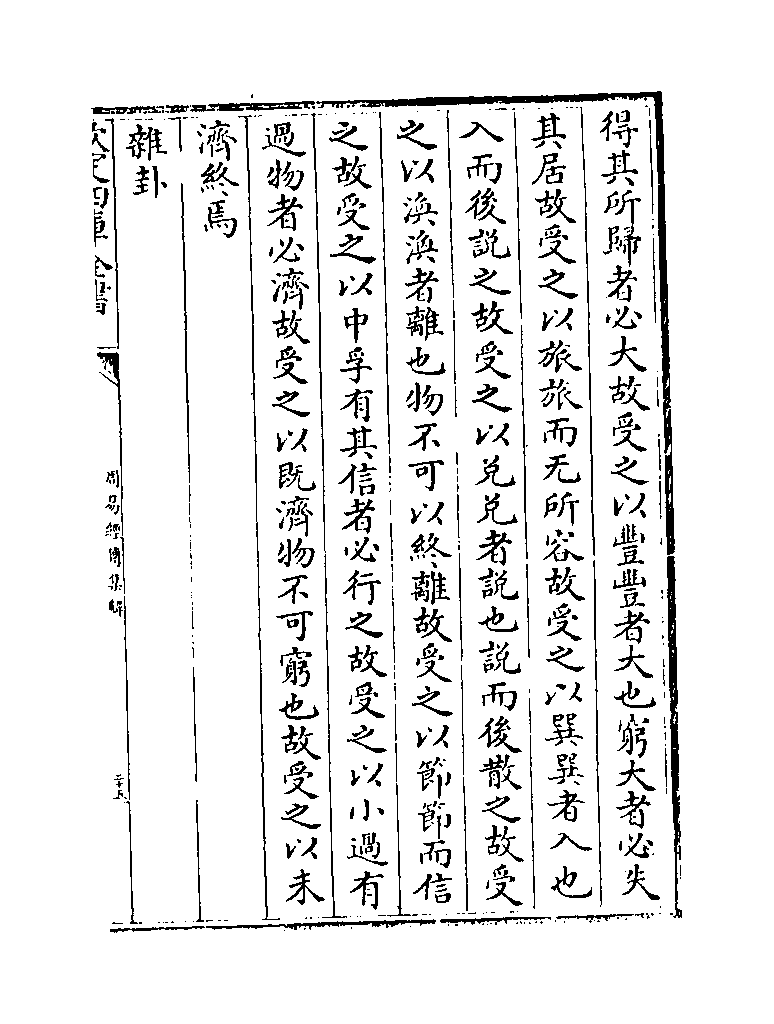 得其所歸者必大故受之以豐豐者大也窮大者必失
其居故受之以旅旅而无所容故受之以巽巽者入也
入而後説之故受之以兑兑者説也説而後散之故受
之以渙渙者離也物不可以終離故受之以節節而信
之故受之以中孚有其信者必行之故受之以小過有
過物者必濟故受之以既濟物不可窮也故受之以未
濟終焉
雜卦
欽定四庫全書
周易經傳集解
三十五